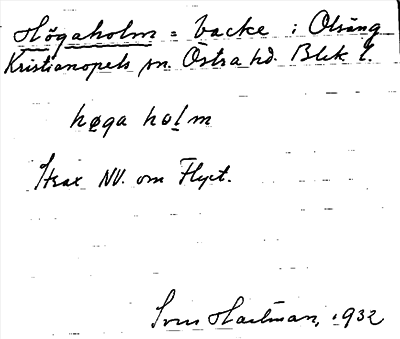 Högaholm = backe i Olsäng
Kristianopels sn. Östra hd. Blek. l.
høga holm
Strax NV. om Flyet.
Sven Hartman, 1932